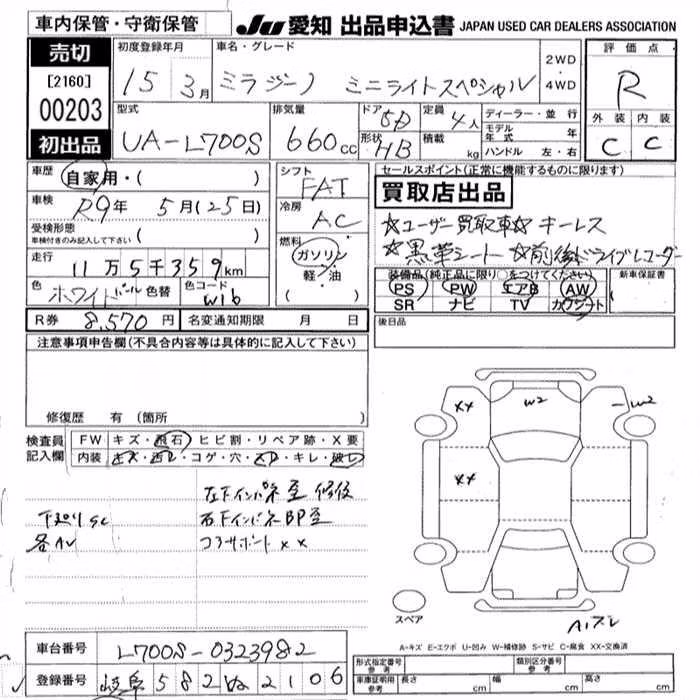 車内保管・守衛保管
JU 愛知 出品申込書 JAPAN USED CAR DEALERS ASSOCIATION
売切
[2160]
00203
初出品
初度登録年月
15 3月
車名・グレード
ミラジーノ ミニライトスペシャル
2WD
・
4WD
評価点
R
外装 内装
C C
型式
UA-L700S
排気量
660cc
ドア 5D
形状 HB
定員 4人
積載 kg
ディーラー・並行
モデル年式 年
ハンドル 左・右
車歴 自家用・( )
車検 R9年 5月(25日)
受検形態
車検付きのみ記入して下さい ( )
走行 11万5千359km
色 ホワイトパール 色替 色コード W16
シフト
FAT
冷房
AC
燃料
ガソリン
軽・油
( )
セールスポイント(正常に機能するものに限ります)
買取店出品
☆ユーザー買取車☆ キーレス
☆黒革シート ☆前後ドライブレコーダー
装備品(純正品に限り○をつけてください)
PS PW エアB AW
SR ナビ TV カワシート
新車保証書
後日品
R券 8,570円 名変通知期限 月 日
注意事項申告欄(不具合内容等は具体的に記入して下さい)
修復歴 有 (箇所 )
検査員記入欄
FW キズ・飛石 ヒビ割・リペア跡・X要
内装 キズ・汚レ・コゲ・穴・スレ・キレ・破レ
左下インパネ歪 修復
下廻りSC 右下インパネBP歪
各AU コアサポートXX
XX W2 W2
XX
スペア
A1ズレ
A-キズ E-エクボ U-凹み W-補修跡 S-サビ C-腐食 XX-交換済
車台番号 L700S-0323982
登録番号 岐阜582ぬ2106
形式指定番号 参考
類別区分番号 参考
車庫証明用 参考 長さ cm 幅 cm 高さ cm